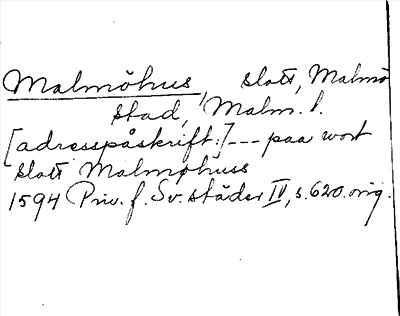 Malmöhus, slott, Malmö
stad, Malm. l.
[adresspåskrift:] --- paa wort
slott Malmøhuss
1594 Priv. f. Sv. städer IV, s. 620. orig.